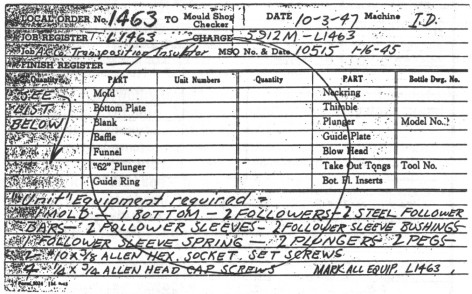 LOCAL ORDER No. 1463 TO Mould Shop Checker DATE 10-3-47 Machine I.D.
JOB REGISTER L1463 CHARGE S912M-L1463
Job Transposition Insulator MSO No. & Date 10515 1-16-45
FINISH REGISTER
Quantity PART Unit Numbers Quantity PART Bottle Dwg. No.
SEE Mold Neckring
LIST Bottom Plate Thimble
BELOW Blank Plunger Model No.
Baffle Guide Plate
Funnel Blow Head
"62" Plunger Take Out Tongs Tool No.
Guide Ring Bot. Pl. Inserts
"Unit" Equipment required =
1 MOLD - 1 BOTTOM - 2 FOLLOWERS - 2 STEEL FOLLOWER
BARS - 2 FOLLOWER SLEEVES - 2 FOLLOWER SLEEVE BUSHINGS
1 FOLLOWER SLEEVE SPRING - 2 PLUNGERS 2 PEGS -
2 - #10 x 3/8 ALLEN HEX. SOCKET. SET SCREWS
4 - 1/4 x 3/4 ALLEN HEAD CAP SCREWS MARK ALL EQUIP. L1463